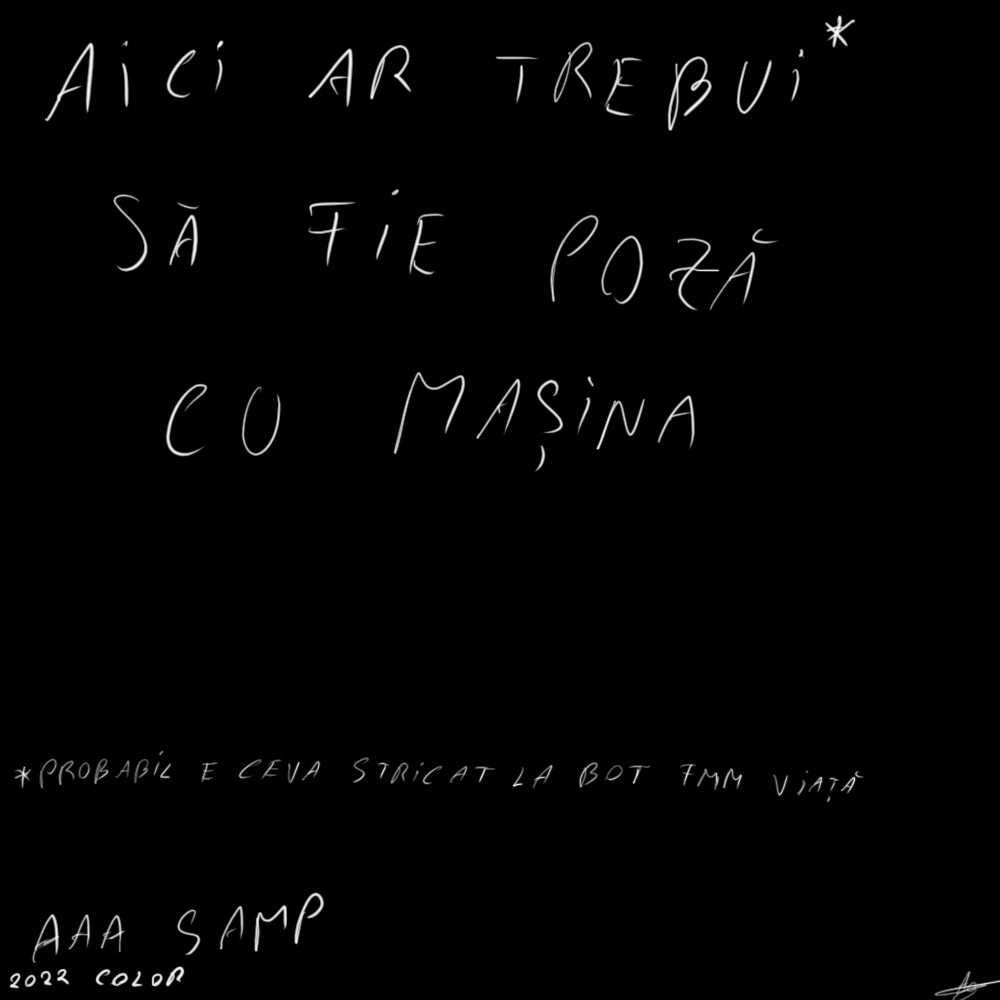 AiCi AR TREBUi*
SĂ FiE POZĂ
CU MAȘiNA
*PROBABiL E CEVA STRiCAT LA BOT FMM ViAȚĂ
AAA SAMP
2022 COLOR